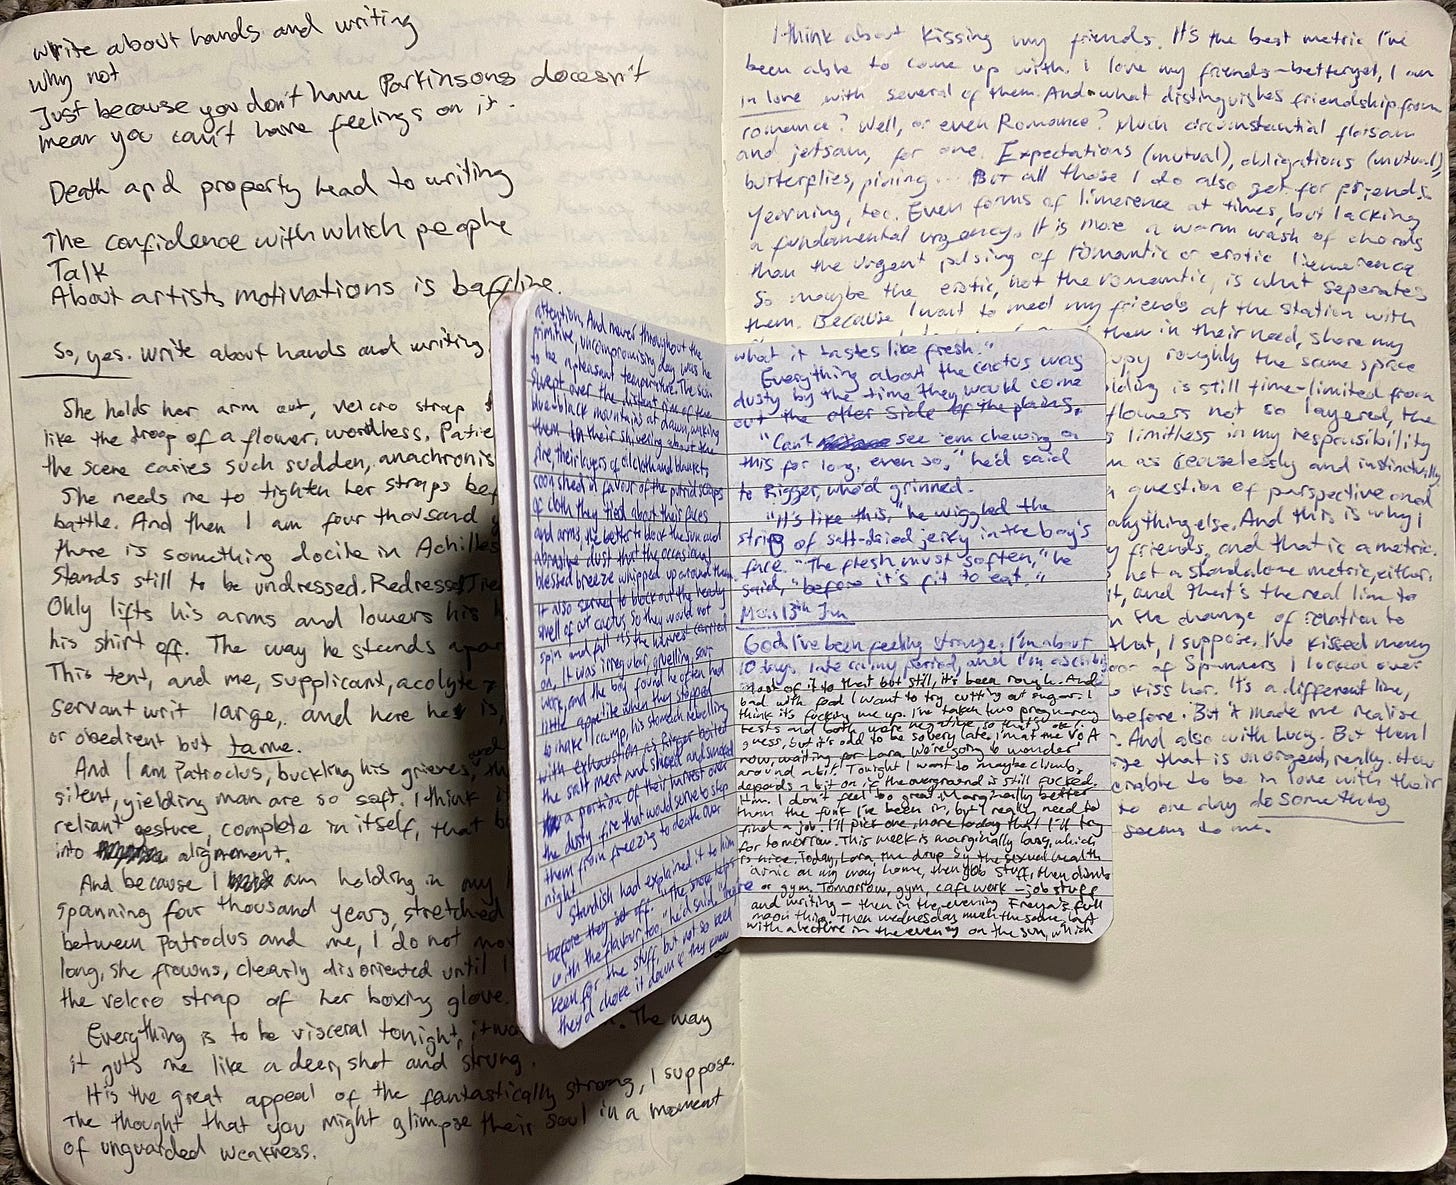 write about hands and writing
why not
Just because you don't have Parkinsons doesn't
mean you can't have feelings on it.
Death and property lead to writing
The confidence with which people
Talk
About artists motivations is baffling.
So, yes. write about hands and writing
She holds her arm out, velcro strap
like the droop of a flower, wordless. Patie
the scene carries such sudden, anachronis
She needs me to tighten her straps bef
battle. And then I am four thousand y
there is something docile in Achilles
Stands still to be undressed. Redressed
Only lifts his arms and lowers his h
his shirt off. The way he stands apar
This tent, and me, supplicant, acolyte
servant writ large, and here he is,
or obedient but tame.
And I am Patroclus, buckling his grieves, and th
silent, yielding man are so soft. I think i
reliant gesture, complete in itself, that b
into alignment.
And because I am holding in my
spanning four thousand years, stretched
between Patroclus and me, I do not mov
long, she frowns, clearly disoriented until I
the velcro strap of her boxing glove.
Everything is to be visceral tonight, it The way
it guts me like a deer, shot and strung.
It is the great appeal of the fantastically strong, I suppose.
The thought that you might glimpse their soul in a moment
of unguarded weakness.
attention. And never throughout the
primitive, uncompromising day was he
to be a pleasant temperature. The sun
swept over the distant rim of the
blue-black mountains at dawn, waking
them in their shivering about the
fire, their layers of oilcloth and blankets
soon shed in favour of the putrid scraps
of cloth they tied about their faces
and arms, the better to block the sun and
abrasive dust that the occasional
blessed breeze whipped up around them.
It also served to block out the heady
smell of cut cactus so they would not
spin and fall as the harvest carried
on. It was irregular, gruelling, sour
work, and the boy found he often had
little appetite when they stopped
to make camp, his stomach rebelling
with exhaustion as Rigger boiled
the salt meat and sliced and smoked
a portion of their harvest over
the dusty fire that would serve to stop
them from freezing to death over
night.
Standish had explained it to him
before they set off. "The smoke helps
with the flavour, too," he'd said "There
keen for the stuff, but not so keen
they'd choke it down if they knew
what it tastes like fresh."
Everything about the cactus was
dusty by the time they would come
out the other side of the plains.
"Can't see 'em chewing on
this for long, even so," he'd said
to Rigger, who'd grinned.
"It's like this," he wiggled the
strip of salt-dried jerky in the boy's
face. "The flesh must soften," he
said, "before it's fit to eat."
Mon 13th Jun
God I've been feeling strange. I'm about
10 days late on my period, and I'm ascribing
most of it to that but still, it's been rough. And
bad with food I want to try cutting out sugar. I
think it's fucking me up. I've taken two pregnancy
tests and both were negative so that's ok I
guess, but it's odd to be so very late. I'm at the V&A
now, waiting for Lara. We're going to wander
around a bit. Tonight I want to maybe climb,
depends a bit on if the overground is still fucked.
Hm. I don't feel too great. Marginally better
than the funk I've been in, but I really need to
find a job. I'll pick one more today that I'll try
for tomorrow. This week is marginally busy, which
is nice. Today, Lara, the drop by the sexual health
clinic on my way home, then job stuff, then climb
or gym. Tomorrow, gym, cafe work – job stuff
and writing – then in the evening Freya's full
moon thing. Then Wednesday much the same, but
with a lecture in the evening on the sun, which
I think about kissing my friends. It's the best metric I've
been able to come up with. I love my friends – better yet, I am
in love with several of them. And what distinguishes friendship from
romance? Well, or even Romance? Much circumstantial flotsam
and jetsam, for one. Expectations (mutual), obligations (mutual),
butterflies, pining... But all those I do also get for friends.
Yearning, too. Even forms of limerence at times, but lacking
a fundamental urgency. It is more a warm wash of chords
than the urgent pulsing of romantic or erotic limerence
So maybe the erotic, not the romantic, is what seperates
them. Because I want to meet my friends at the station with
them in their need, share my
upy roughly the same space
lding is still time-limited from
flowers not so layered, the
s limitless in my responsibility
m as ceaselessly and instinctually
a question of perspective and
anything else. And this is why I
y friends, and that is a metric.
not a standalone metric, either.
t, and that's the real line to
n the change of relation to
that, I suppose. I've kissed many
oor of Spanners I looked over
o kiss her. It's a different line,
before. But it made me realise
. And also with Lucy. But then I
ge that is unurgent, really. How
erable to be in love with their
to one day do something
seems to me.